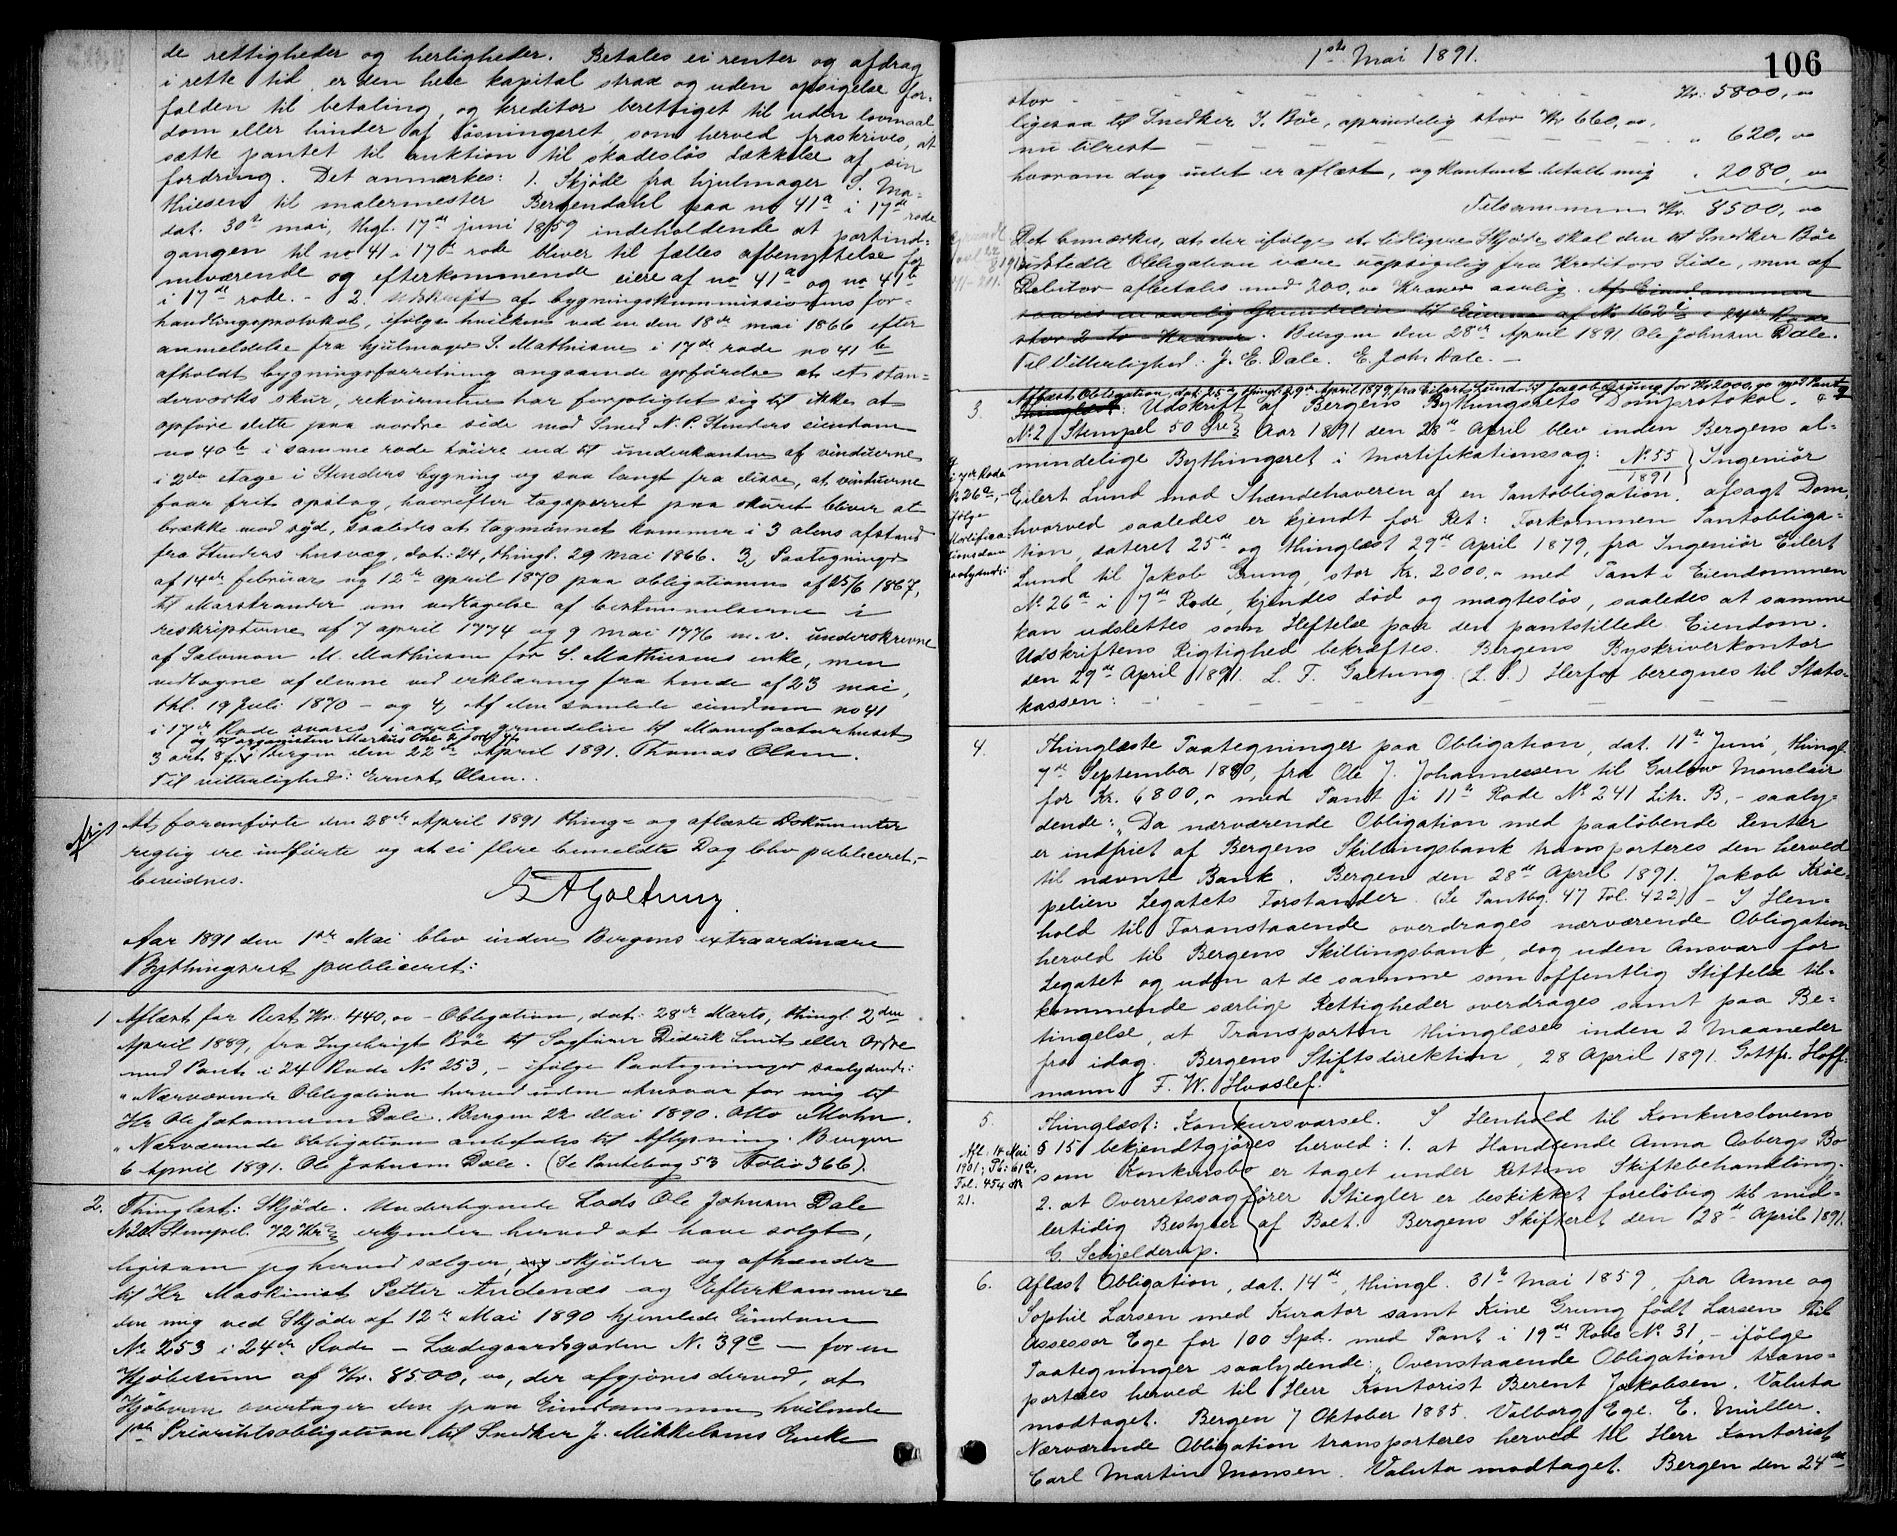 de rettigheder og herligheder. Betales ei renter og afdrag
i rette tid, er den hele kapital strax og uden opsigelse for-
falden til betaling, og kreditor berettiget til uden lovmaal
dom eller hinder af løsningsret, som herved fraskrives, at
sætte pantet til auktion til skadesløs dækkelse af sin
fordring. Det anmærkes: 1. Skjøde fra hjulmager S. Ma-
thiesen til malermester Bergendahl paa no 41a i 17de rode
dat. 30te mai, thgl. 17de juni 1859 indeholdende at portind-
gangen til no 41 i 17de rode bliver til fælles afbenyttelse for
nuværende og efterkommende eiere af no 41a og no 41b
i 17de rode. - 2. Udskrift af bygningskommissionens for-
handlingsprotokol, ifølge hvilken ved en den 18de mai 1866 efter
anmeldelse fra hjulmager S. Mathiesen i 17de rode no 41b
afholdt bygningsforretning angaaende opførelse at et stan-
derværks skur, rekvirenten har forpligtet sig til ikke at
opføre dette paa nordre side mod Smed N. P. Stenders eiendom
no 40b i samme rode høiere end til underkanten af vinduerne
i 2den etage i Stenders bygning og saa langt fra disse, at vinduerne
faar frit opslag, hvorefter tagsperret paa skuret bliver at
brække mod syd, saaledes at tagmønnet kommer i 3 alens afstand
fra Stenders husvæg, dat. 24, thingl. 29 mai 1866. 3, Paategninger
af 14de februar og 12te april 1870 paa obligationen af 25/6 1867,
til Marstrander om vedtagelse af bestemmelserne i
reskripterne af 7 april 1774 og 9 mai 1776 m. v. underskrevne
af Salomon M. Mathiesen for S. Mathiesens enke, men
vedtagne af denne ved erklæring fra hende af 23 mai,
thl. 19 Juli 1870 - og 4, Af den samlede eiendom no 41
i 17de Rode svares i aarlig grundleie til Manufacturhuset
3 ort 8 s. Bergen den 22de April 1891. Thomas Olsen.
Til vitterlighed: Ernest Olsen.
At foranførte den 28de April 1891 thing- og aflæste Dokumenter
rigtig ere indførte og at ei flere bemeldte Dag blev publiceret,-
bevidnes.
Aar 1891 den 1ste Mai blev inden Bergens extraordinære
Bythingsret publiceret:
1 Aflæst for Rest Kr. 440,00 - Obligation, dat. 28de Marts, thingl. 2den
April 1889, fra Ingebrigt Bøe til Sagfører Didrik Smit eller Ordre
med Pant i 24 Rode No 253, - ifølge Paategninger saalydende:
"Nærværende Obligation herved uden Ansvar for mig til
Hr Ole Johannesen Dale. Bergen 22 Mai 1890. Otto Mohn.
"Nærværende Obligation anbefales til Aflysning. Bergen
6 April 1891. Ole Johnsen Dale. (Se Pantebog 53 Folio 366).
2. Thinglæst: Skjøde. Undertegnede Lods Ole Johnsen Dale
Stempel 72 Kr erkjender herved at have solgt,
ligesom jeg herved sælger, skjøder og afhænder
til Hr Maskinist Petter Andenæs og Efterkommere
den mig ved Skjøde af 12te Mai 1890 hjemlede Eiendom
No 253 i 24de Rode - Ladegaardsgaden N. 39c - for en
Kjøbesum af Kr. 8500,00, der afgjøres derved, at
Kjøberen overtager den paa Eiendommen hvilende
1ste Prioritetsobligation til Snedker J. Mikkelsens Enke
1ste Mai 1891.
106
stor - - - - - - - Kr. 5800,00
ligesaa til Snedker I. Bøe, oprindelig stor Kr 660,00,
nu tilrest - - - - - - - " 620,00
hvorom dog intet er aflæst, og kontant betalt mig " 2080,00
Tilsammen Kr. 8500,00
Det bemærkes, at der ifølge et tidligere Skjøde skal den til Snedker Bøe
udstedte Obligation være uopsigelig fra Kreditors Side, men af
Debitor afbetales med 200,00 Kroner aarlig. Af Eiendommen
svares en aarlig Grundleie til Eieren af No 162 i 24de Rode
stor 2 to Kroner. Bergen den 28de April 1891 Ole Johnsen Dale.
Til Vitterlighed: J. E. Dale. E. Joh. Dale. -
Aflæst Obligation, dat. 25de, thingl. 29de April 1879, fra Eilert Lund til Jacob Grung for Kr 2000,00 med Pant
3. Udskrift af Bergens Bythingsrets Domprotokol.
No 2 / Stempel 50 Øre Aar 1891 den 28de April blev inden Bergens al-
mindelige Bythingsret i Mortifikationssag: No 55/1891 Ingeniør
i 7de Rode
No 26a,
ifølge
Mortifica-
tionsdom
saalydende:
Eilert Lund mod Ihændehaveren af en Pantobligation, afsagt Dom,
hvorved saaledes er kjendt for Ret: Forkommen Pantobliga-
tion, dateret 25de og thinglæst 29de April 1879, fra Ingeniør Eilert
Lund til Jakob Grung, stor Kr. 2000,- med Pant i Eiendommen
No 26a i 7de Rode, kjendes død og magtesløs, saaledes at samme
kan udslettes som Heftelse paa den pantstillede Eiendom.
Udskriftens Rigtighed bekræftes. Bergens Byskriverkontor
den 29de April 1891. L. F. Galtung (L. S.) Herfor beregnes til Stats-
kassen: - - - - - - -
4. Thinglæste Paategninger paa Obligation, dat. 11te Juni, thingl.
7de September 1880, fra Ole J. Johannessen til Garlow Monclair
for Kr. 6800,- med Pant i 11te Rode No 241 Litr. B, - saaly-
dende: "Da nærværende Obligation med paaløbende Renter
er indfriet af Bergens Skillingsbank transporteres den herved
til nævnte Bank. Bergen den 28de April 1891. Jakob Krøe-
pelien Legatets Forstander. (Se Pantbg. 47 Fol. 422) - I Hen-
hold til Foranstaaende overdrages nærværende Obligation
herved til Bergens Skillingsbank, dog uden Ansvar for
Legatet og uden at de samme som offentlig Stiftelse til-
kommende særlige Rettigheder overdrages samt paa Be-
tingelse, at Transporten thinglæses inden 2 Maaneder
fra idag. Bergens Stiftsdirektion, 28 April 1891. Gottfr. Hoff-
mann F. W. Hvoslef.
5. Thinglæst: Konkursvarsel. I Henhold til Konkurslovens
§ 15 bekjendtgjøres herved: 1. at Handlende Anna Osbergs Bo
Afl. 14 Mai
1901; Pb. 61a
Fol. 454 No
21.
som Konkursbo er taget under Rettens Skiftebehandling.
2. at Overretssagfører Stiegler er beskikket foreløbig til mid-
lertidig Bestyrer af Boet. Bergens Skifteret den 28de April 1891.
G. Schjelderup.
6. Aflæst Obligation, dat. 14de, thingl. 31te Mai 1859, fra Anne og
Sophie Larsen med Kurator samt Kine Grung født Larsen til
Assessor Ege for 100 Spd. med Pant i 19de Rode No 31, - ifølge
Paategninger saalydende: "Ovenstaaende Obligation trans-
porteres herved til Herr Kontorist Berent Jakobsen. Valuta
modtaget. Bergen 7 Oktober 1885. Valborg Ege. E. Müller.
Nærværende Obligation transporteres herved til Herr Kontorist
Carl Martin Monsen. Valuta modtaget. Bergen den 24de